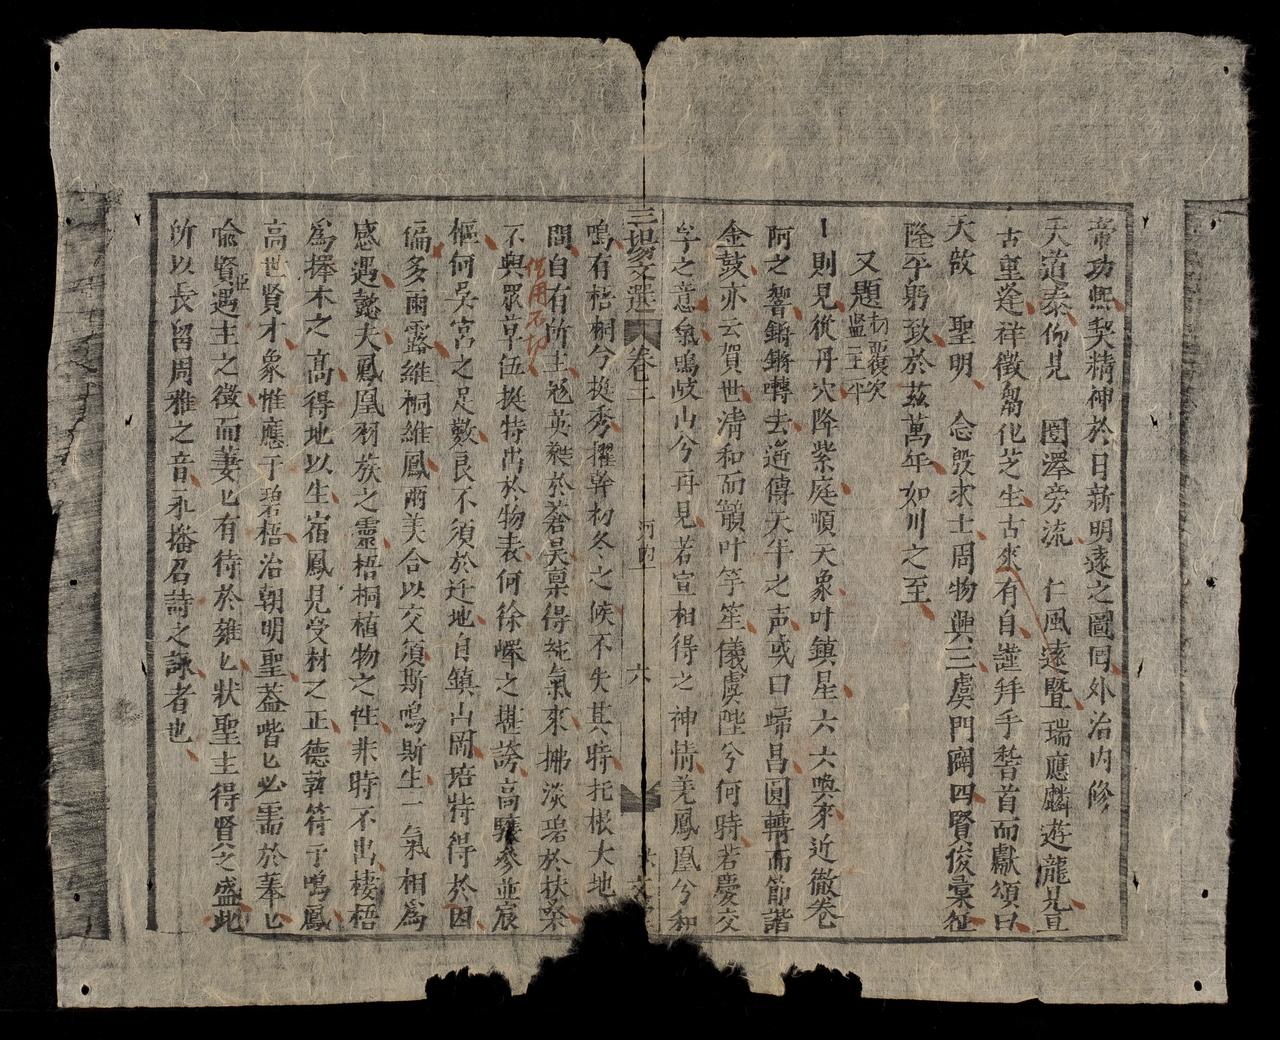 帝功熙契精神於日新明遠之圖囘外治内修
天道泰仰見 圈澤旁流 仁風遠暨瑞應麟遊龍見亘
古重逢祥徵鳥化芝生古來有自謹拜手稽首而獻頌曰
大啟 聖明 念殷求士周物興三虞門闢四賢俊彙征
隆平躬致於茲萬年如川之至
又題
則見從丹穴降紫庭頓天象叶鎮星六六喚來近徹卷
阿之響鏘鏘囀去遙傳天半之声或曰歸昌圓轉而節諧
金鼓亦云賀世清和而韻叶竽笙儀虞陛兮何時若慶交
孚之意氣鳴岐山兮再見若宣相得之神情羌鳳凰兮和
三場文選 卷二 河内 六
鳴有梧桐兮挺秀擢幹初冬之候不失其時托根大地
間自有所主冠英桀於蒼昊稟得純氣來拂淡碧於扶桑
借用不切
不與眾草伍挺特出於物表何徐嶧之堪誇高驤參並宸
樞何吳宮之足數良不須於迁地自鎮山岡培特得於因
偏多雨露維桐維鳳兩美合以交須斯鳴斯生一氣相爲
感遇懿夫鳳凰羽族之靈梧桐植物之性非時不出棲梧
爲擇木之高得地以生宿鳳見受材之正德彰符于鳴鳳
高世賢才象惟應于碧梧治朝明聖蓋喈匕必需於菶匕
喻賢遇主之徵而萋匕有待於雝匕狀聖主得賢之盛此
所以長留周雅之音永播召詩之詠者也